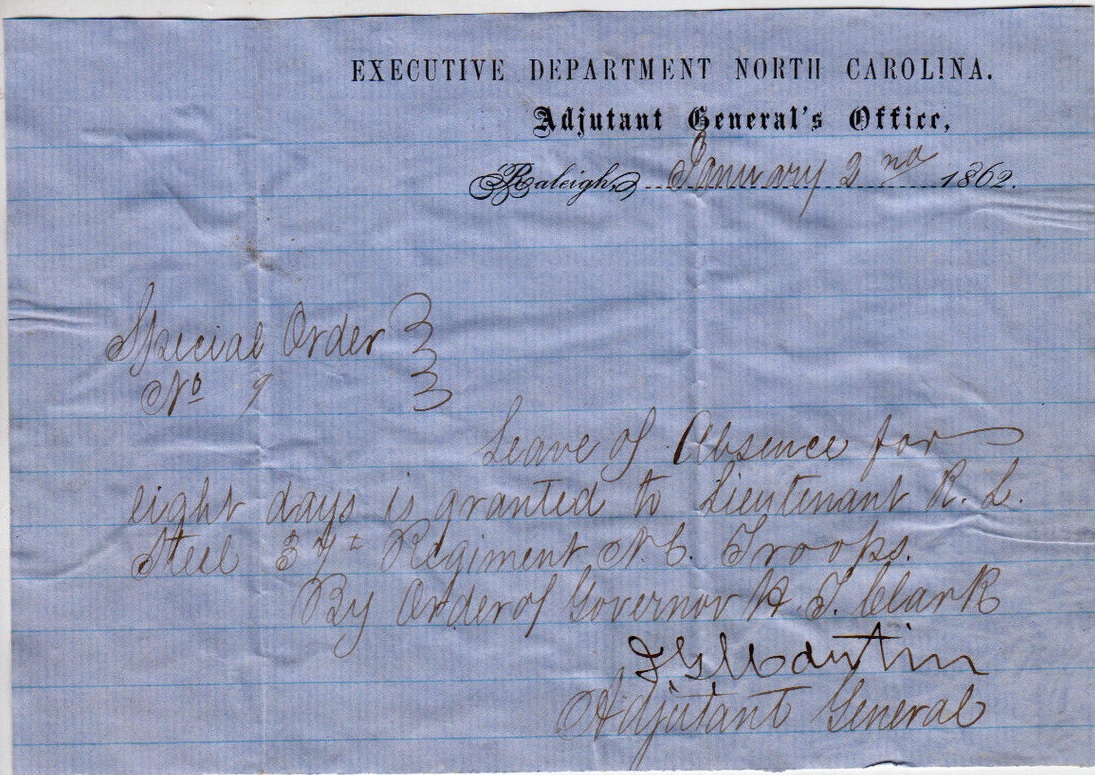 EXECUTIVE DEPARTMENT NORTH CAROLINA.
Adjutant General's Office,
Raleigh, January 2nd 1862.
Special Order
No 9
Leave of Absence for
eight days is granted to Lieutenant R. L.
Steel 37t Regiment N.C. Troops.
By Order of Governor H. T. Clark
J G Martin
Adjutant General